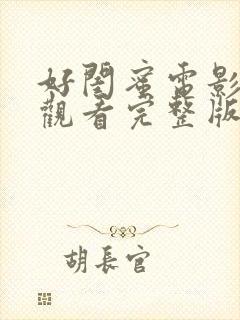 好閨蜜電影
觀看完整版
胡長官